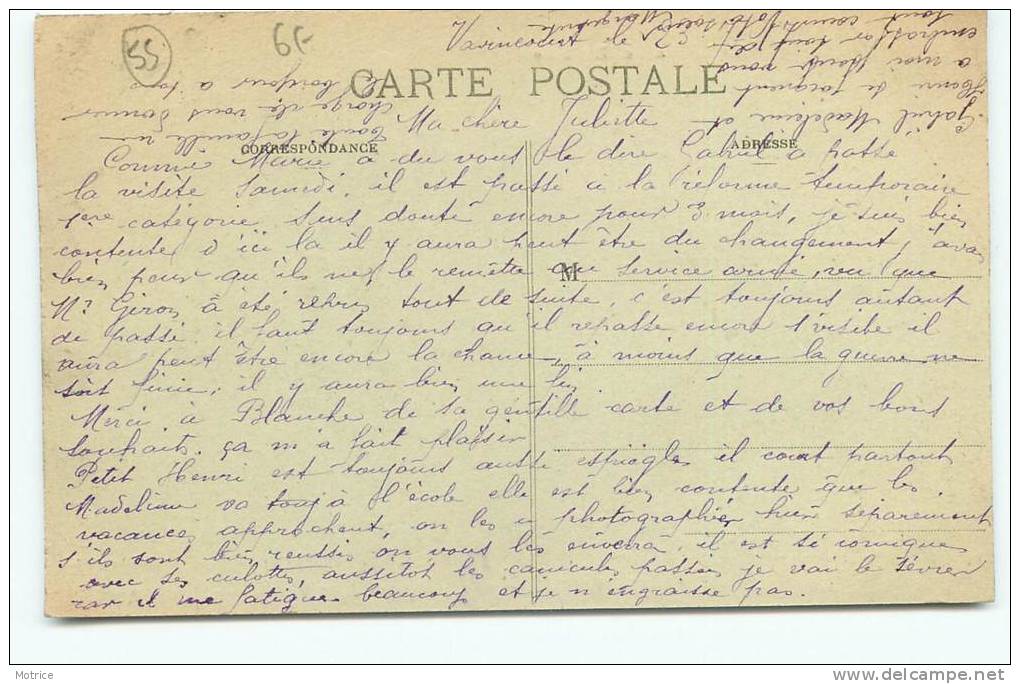 55
6F
Varincourt le 2
CARTE POSTALE
Ma chère Juliette
CORRESPONDANCE
ADRESSE
Comme Marie a du vous le dire Gabriel a passé
la visite Samedi, il est passé a la réforme temporaire
1ere catégorie sans doute encore pour 3 mois, je suis bien
contente d'ici la il y aura peut être du changement, j'avais
bien peur qu'ils ne le remette au service armé, vu que
M
Mr Giron à été repris tout de suite, c'est toujours autant
de passé il faut toujours qu'il repasse encore 1 visite il
aura peut être encore la chance, à moins que la guerre ne
soit finie, il y aura bien une fin.
Merci à Blanche de sa gentille carte et de vos bons
souhaits, ça m'a fait plaisir
Petit Henri est toujours aussi espiègle il court partout
Madeleine va à l'école elle est bien contente que les
vacances approchent, on les a photographier hier séparement
s'ils sont bien reussis on vous les enverra, il est si comique
avec ses culottes, aussitot les canicules passées je vai le sevrer
car il me fatigue beaucoup et je n'engraisse pas.
Toute la famille me
charge de vous donner
le bonjour a tous
Gabriel Madeleine et
Henri se joignent
a moi pour vous
embrasser tout de
tout cœur Votre sœur Marguerite
Motrice
www.delcampe.net